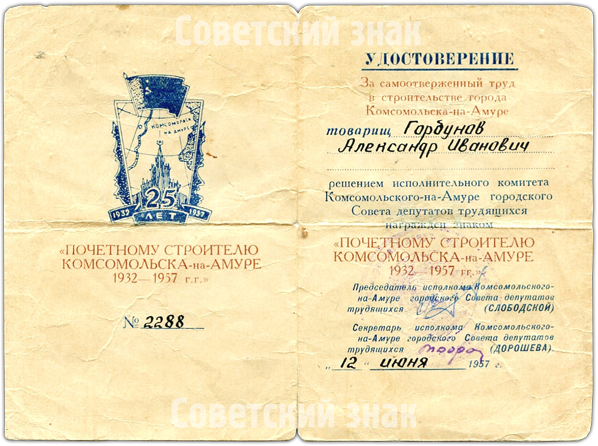 Советский знак
КОМСОМОЛЬСК
НА АМУРЕ
25
1932 ЛЕТ 1957
«ПОЧЕТНОМУ СТРОИТЕЛЮ
КОМСОМОЛЬСКА-на-АМУРЕ
1932—1957 г.г.»
№ 2288
УДОСТОВЕРЕНИЕ
За самоотверженный труд
в строительстве города
Комсомольска-на-Амуре
товарищ Горбунов
Александр Иванович
решением исполнительного комитета
Комсомольского-на-Амуре городского
Совета депутатов трудящихся
награжден знаком
«ПОЧЕТНОМУ СТРОИТЕЛЮ
КОМСОМОЛЬСКА-на-АМУРЕ
1932—1957 г.г.»
Председатель исполкома Комсомольского-
на-Амуре городского Совета депутатов
трудящихся (СЛОБОДСКОЙ)
Секретарь исполкома Комсомольского-
на-Амуре городского Совета депутатов
трудящихся (ДОРОШЕВА)
„12" июня 1957 г.
Советский знак